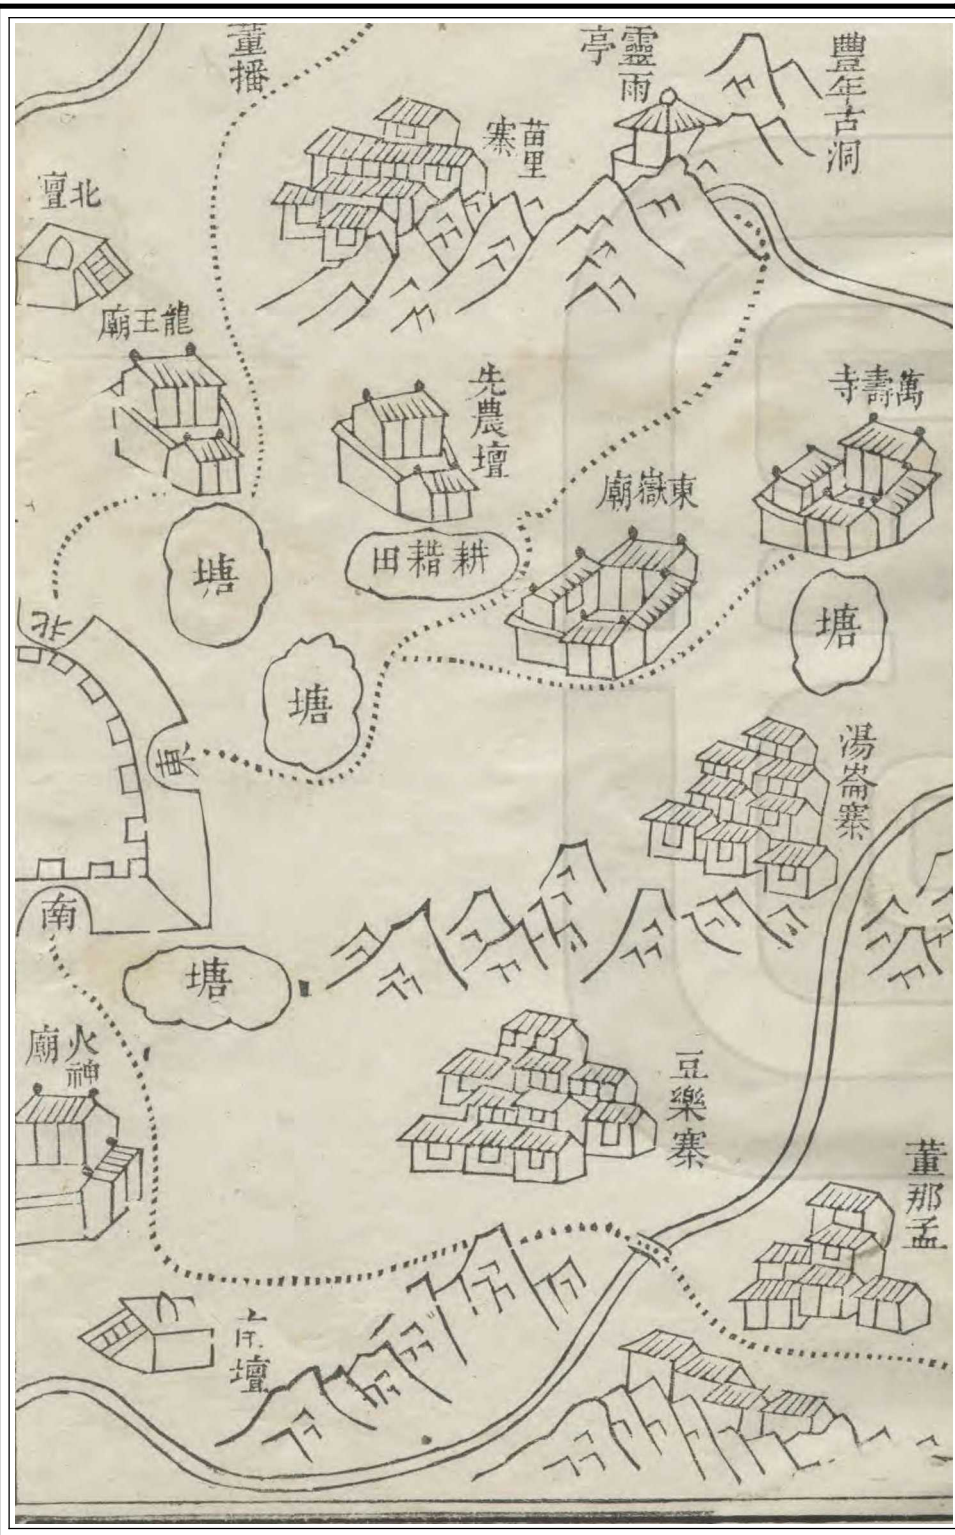 豐年古洞
靈雨亭
董播
苗里寨
北壇
龍王廟
先農壇
萬壽寺
東嶽廟
耕耤田
塘
塘
塘
北
東
湯崙寨
南
塘
火神廟
豆樂寨
董那孟
壇